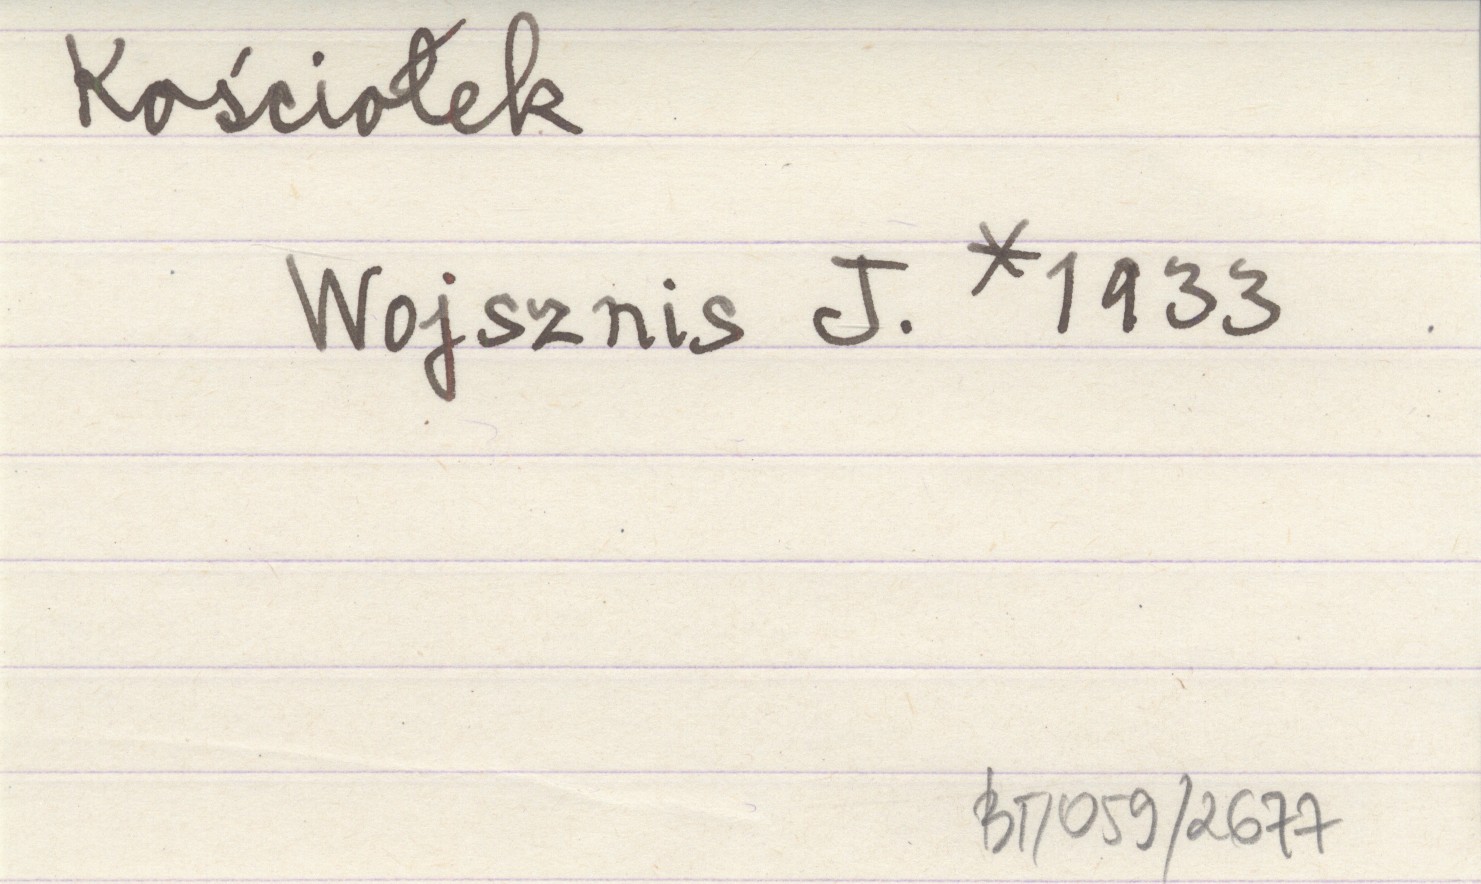 Kościołek
Wojsznis J. *1933
BT/059/2677